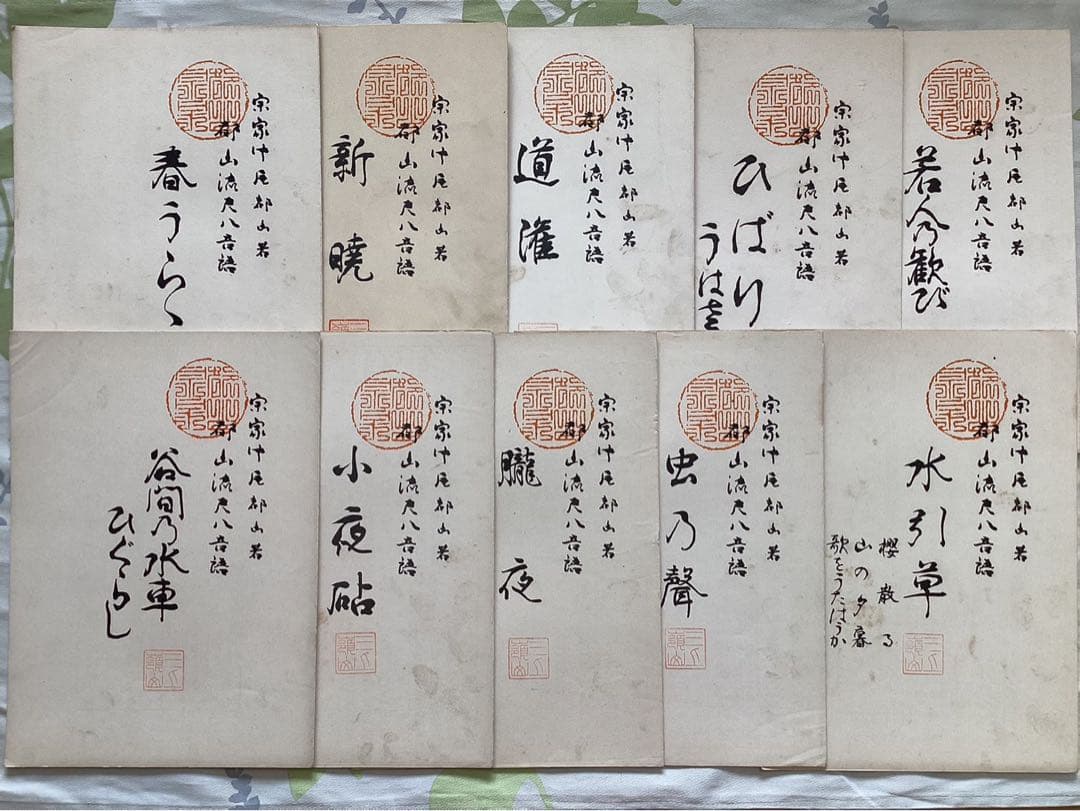 宗家中尾都山著
都山流尺八音譜
春うらゝ
宗家中尾都山著
都山流尺八音譜
新曉
宗家中尾都山著
都山流尺八音譜
道灌
宗家中尾都山著
都山流尺八音譜
ひばり
うはさ
宗家中尾都山著
都山流尺八音譜
若人乃歓び
宗家中尾都山著
都山流尺八音譜
谷間乃水車
ひぐらし
宗家中尾都山著
都山流尺八音譜
小夜砧
宗家中尾都山著
都山流尺八音譜
朧夜
宗家中尾都山著
都山流尺八音譜
虫乃聲
宗家中尾都山著
都山流尺八音譜
水引草
櫻散る
山の夕暮
歌をうたはうか